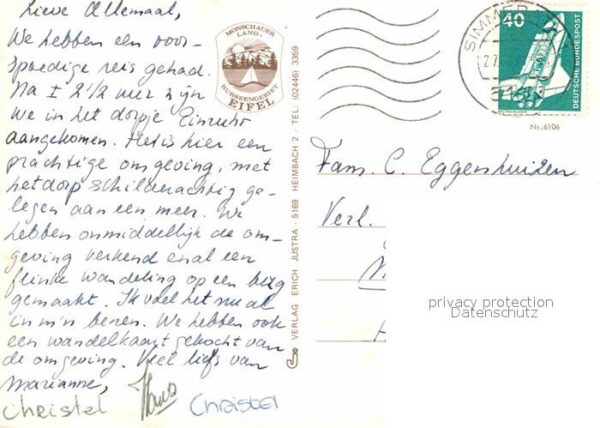 Lieve Allemaal,
We hebben een voor-
spoedige reis gehad.
Na ± 2½ uur zijn
we in het dorpje Einruhr
aangekomen. Het is hier een
prachtige omgeving, met
het dorp schilderachtig ge-
legen aan een meer. We
hebben onmiddellijk de om-
geving verkend en al een
flinke wandeling op een berg
gemaakt. Ik voel het nu al
in m'n benen. We hebben ook
een wandelkaart gekocht van
de omgeving. Veel liefs van
Marianne,
Christel Hans Christel
MONSCHAUER
LAND-
RURSEENGEBIET
EIFEL
VERLAG ERICH JUSTRA · 5169 HEIMBACH 2 · TEL: (02446) 3359
SIMMER
40
DEUTSCHE BUNDESPOST
Nr. 6106
Fam. C. Eggenhuizen
Verl.
privacy protection
Datenschutz